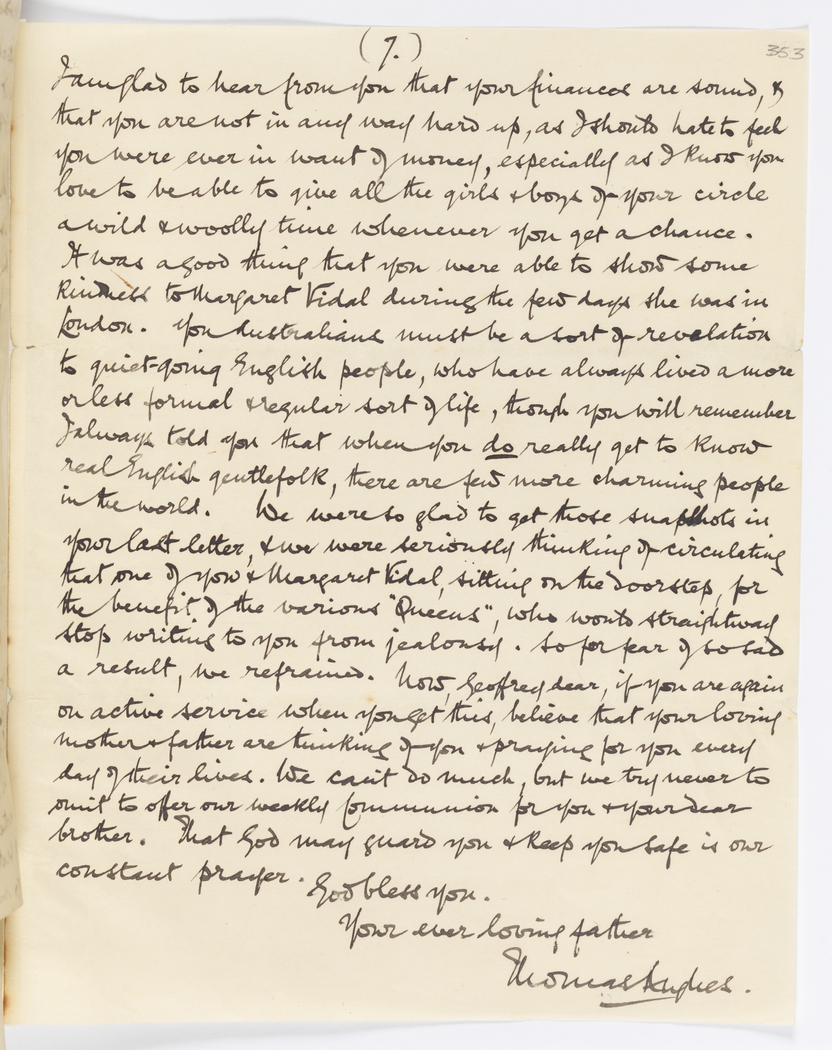 (7.)
353
I am glad to hear from you that your finances are sound, &
that you are not in any way hard up, as I should hate to feel
you were ever in want of money, especially as I know you
love to be able to give all the girls & boys of your circle
a wild & woolly time whenever you get a chance.
It was a good thing that you were able to show some
kindness to Margaret Vidal during the few days she was in
London. You Australians must be a sort of revelation
to quiet-going English people, who have always lived a more
or less formal & regular sort of life, though you will remember
I always told you that when you do really get to know
real English gentlefolk, there are few more charming people
in the world. We were so glad to get those snapshots in
your last letter, & we were seriously thinking of circulating
that one of you & Margaret Vidal, sitting on the doorstep, for
the benefit of the various "Queens", who would straightway
stop writing to you from jealousy. So for fear of so sad
a result, we refrained. Now, Geoffrey dear, if you are again
on active service when you get this, believe that your loving
mother & father are thinking of you & praying for you every
day of their lives. We can't do much, but we try never to
omit to offer our weekly Communion for you & your dear
brother. That God may guard you & keep you safe is our
constant prayer. God bless you.
Your ever loving father
Thomas Hughes.